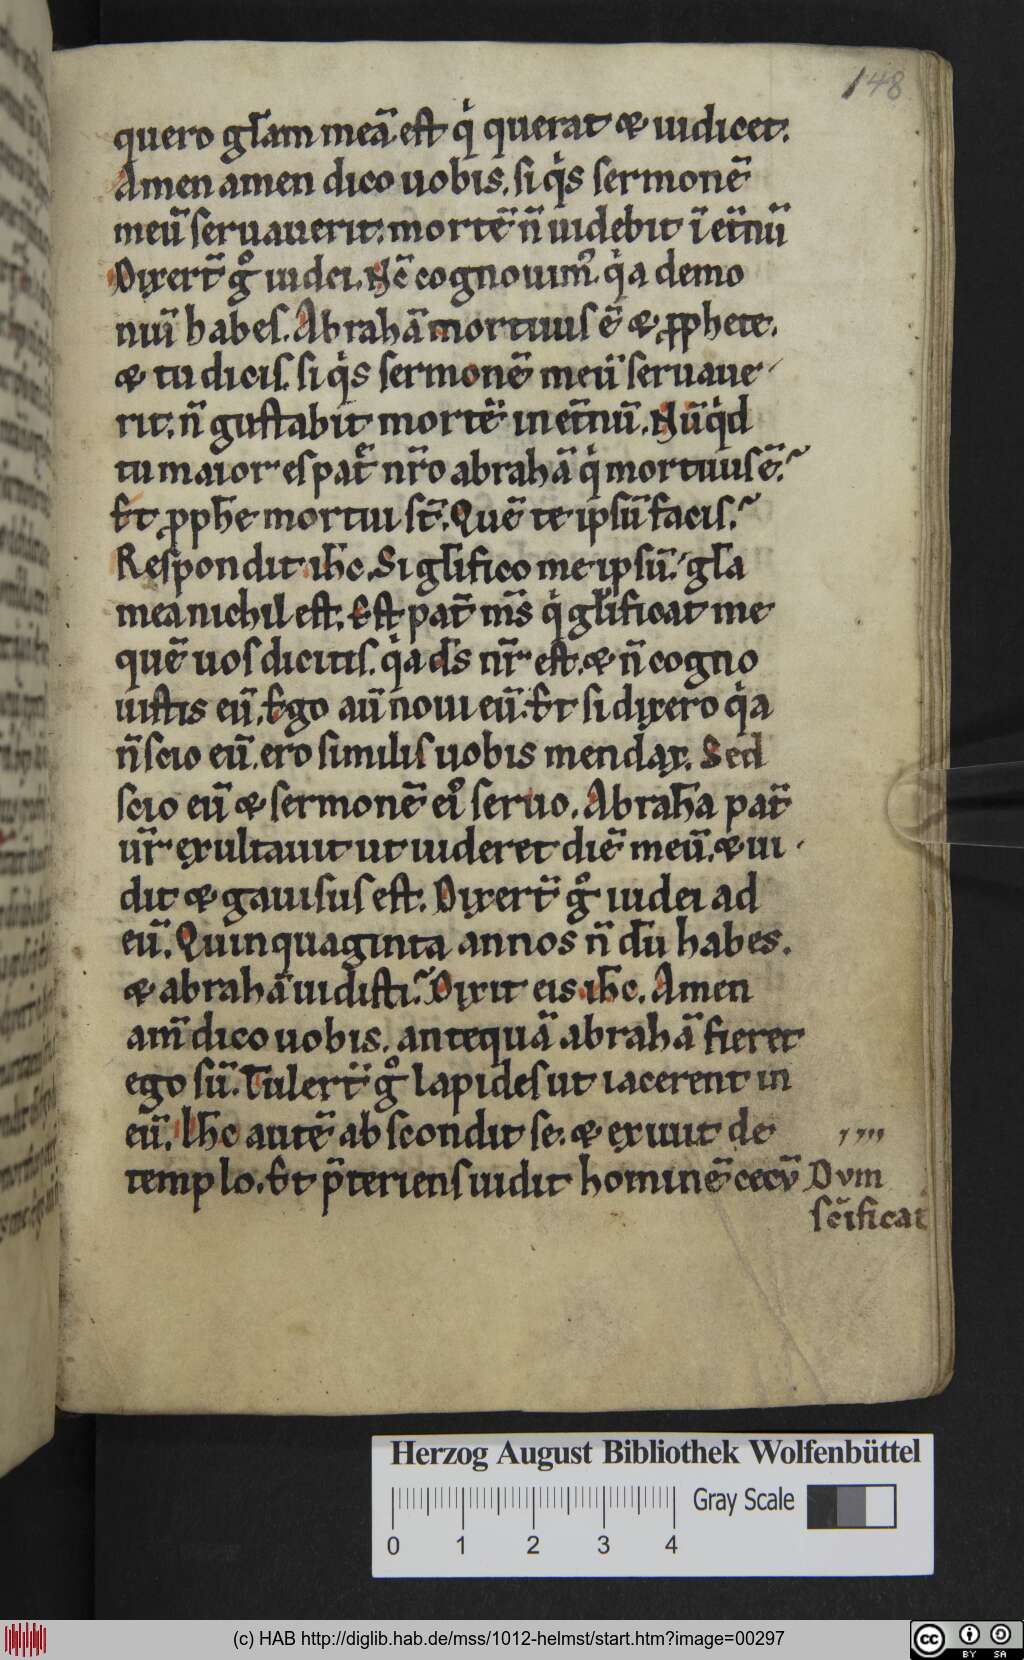 148
quero gl̅am meā. est qͥ querat & iudicet.
Amen amen dico uobis. si qͥs sermonē
meū seruauerit. mortē n̄ uidebit ī et̄nū
Dixert̄ gͦ iudei. Nc̄ cognouimꝰ. qͥa demo
niū habes. Abrahā mortuus ē & ꝓphete.
& tu dicis. si qͥs sermonē meū seruaue
rit. n̄ gustabit mortē in et̄nū. Nūqͥd
tu maior es pat̄ nr̄o abrahā qͥ mortuus ē.
Et ꝓph̄e mortui st̄. Quē te ipsū facis.
Respondit ih̄c. Si gl̅ifico me ipsū. gl̅a
mea nichil est. Est pat̄ ms̄ qͥ gl̅ificat me
quē uos dicitis. qͥa ds̄ nr̄ est. & n̄ cogno
uistis eū. Ego aū noui eū. Et si dixero qͥa
n̄ scio eū. ero similis uobis mendax. Sed
scio eū & sermonē eiꝰ seruo. Abrah̄a pat̄
ur̄ exultauit ut uideret diē meū. & ui
dit & gauisus est. Dixert̄ gͦ iudei ad
eū. Quinquaginta annos n̄du̅ habes.
& abrahā uidisti. Dixit eis ih̄c. Amen
am̄ dico uobis. antequā abrahā fieret
ego sū. Tulert̄ gͦ lapides ut iacerent in
eū. Ih̄c autē abscondit se. & exiuit de
templo. Et p̄teriens uidit hominē cecū Dvm
sc̄ificat
Herzog August Bibliothek Wolfenbüttel
Gray Scale
0 1 2 3 4
(c) HAB http://diglib.hab.de/mss/1012-helmst/start.htm?image=00297
cc BY SA